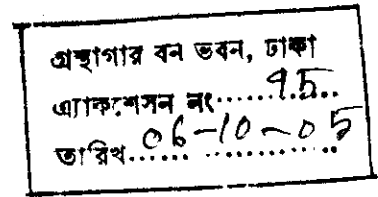 গ্রন্থাগার বন ভবন, ঢাকা
এ্যাকসেশন নং......95..
তারিখ..06-10-05